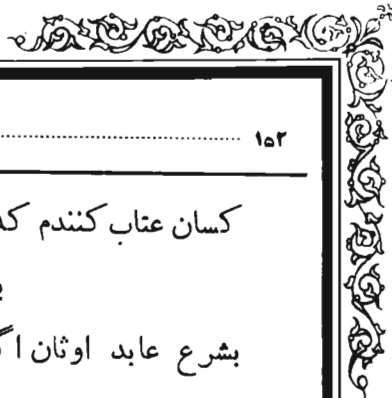 ۱۵۲
کسان عتاب کنندم
بشرع عابد اوثان